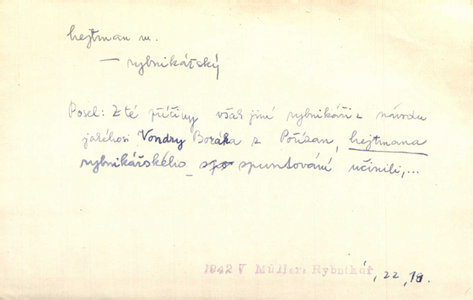 hejtman m.
— rybnikářský
Posel: Z té příčiny však jiní rybnikáři z návodu
jakéhosi Vondry Boráka z Pořízan, hejtmana
rybnikářského spuntování učinili,...
1942 V Müller: Rybnikář, 22, 18.